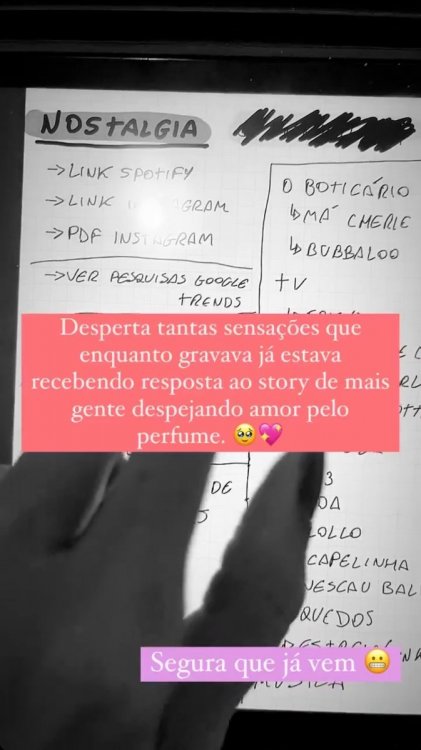 NOSTALGIA
→LINK SPOTIFY
→LINK INSTAGRAM
→PDF INSTAGRAM
→VER PESQUISAS GOOGLE
TRENDS
O BOTICÁRIO
↳MA CHERIE
↳BUBBALOO
TV
Desperta tantas sensações que
enquanto gravava já estava
recebendo resposta ao story de mais
gente despejando amor pelo
perfume. 🥹💖
DE
3
LOLLO
CAPELINHA
NESCAU BAL
QUEDOS
Segura que já vem 😬
MÚSICA